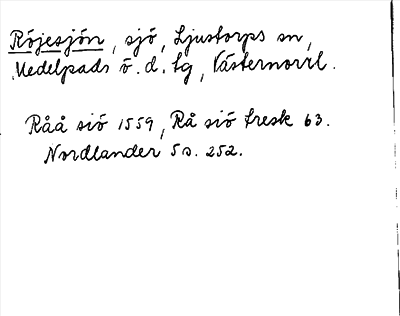 Röjesjön, sjö, Ljustorps sn,
Medelpads ö. d. tg, Västernorrl.
Råå siö 1559, Rå siö tresk 63.
Nordlander 5 s. 252.